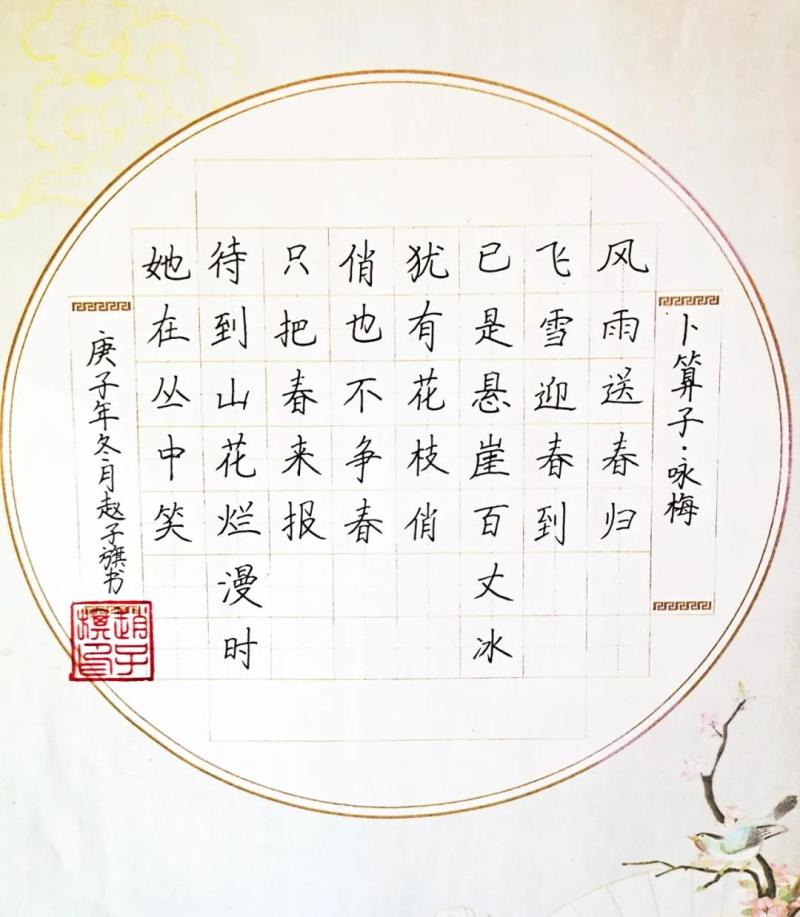 卜算子·咏梅
风雨送春归
飞雪迎春到
已是悬崖百丈冰
犹有花枝俏
俏也不争春
只把春来报
待到山花烂漫时
她在丛中笑
庚子年冬月赵子旗书
趙子旗印